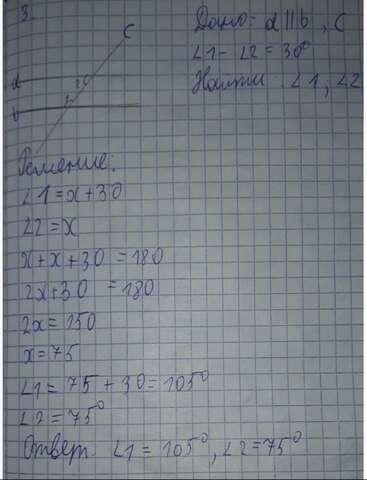 3.
Дано: a || b, C
∠1 - ∠2 = 30°
Найти ∠1; ∠2
C
a
2
b
1
Решение:
∠1 = x + 30
∠2 = x
x + x + 30 = 180
2x + 30 = 180
2x = 150
x = 75
∠1 = 75 + 30 = 105°
∠2 = 75°
Ответ. ∠1 = 105°, ∠2 = 75°